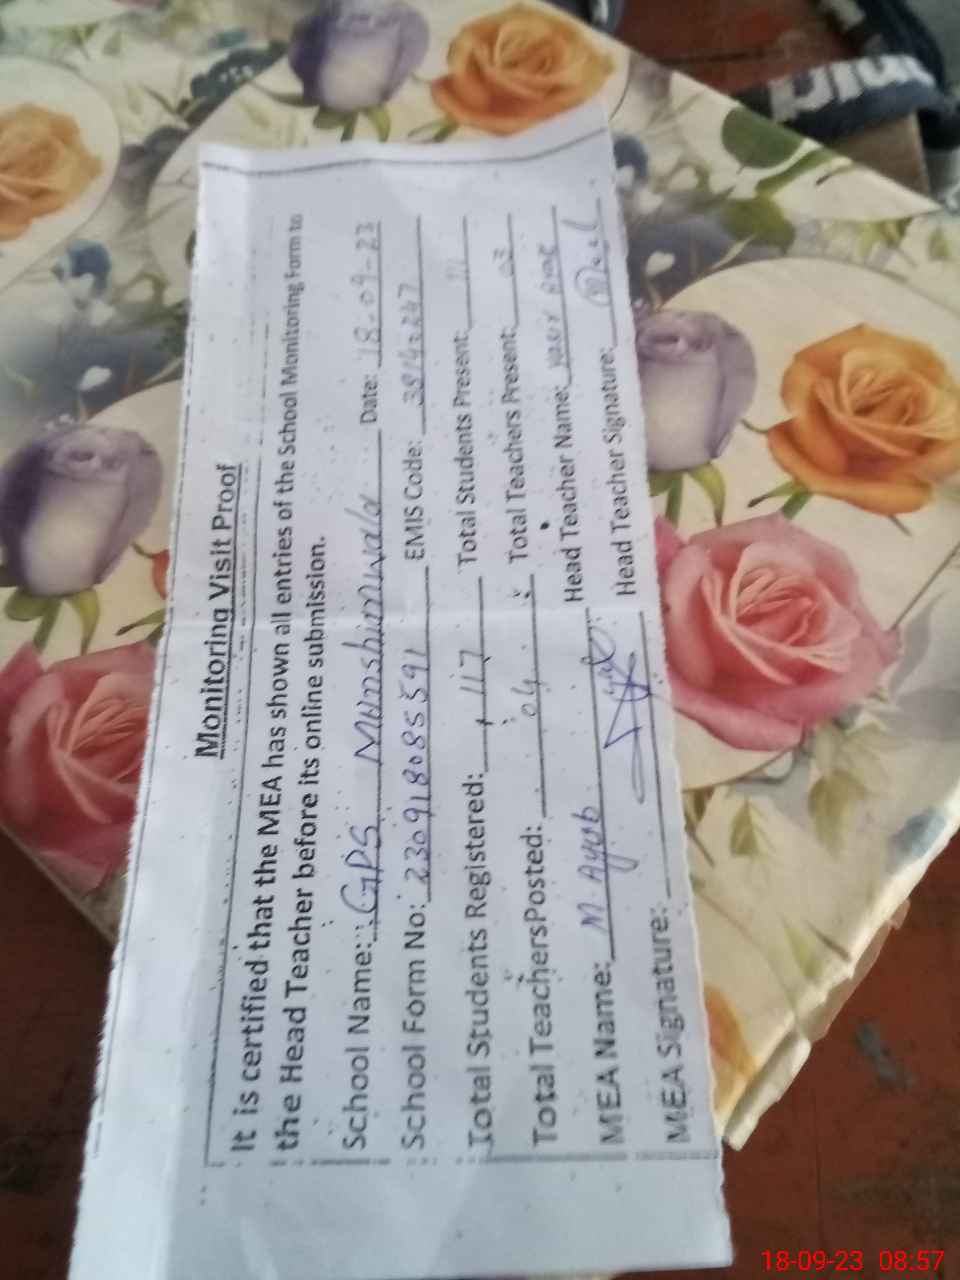 Monitoring Visit Proof
It is certified that the MEA has shown all entries of the School Monitoring Form to
the Head Teacher before its online submission.
School Name: GPS Munshianwala Date: 18-09-23
School Form No: 230918085591 EMIS Code:
Total Students Registered: 117 Total Students Present: 111
Total Teachers Posted: 04 Total Teachers Present: 03
MEA Name: M Ayub Head Teacher Name:
MEA Signature: Head Teacher Signature:
18-09-23 08:57